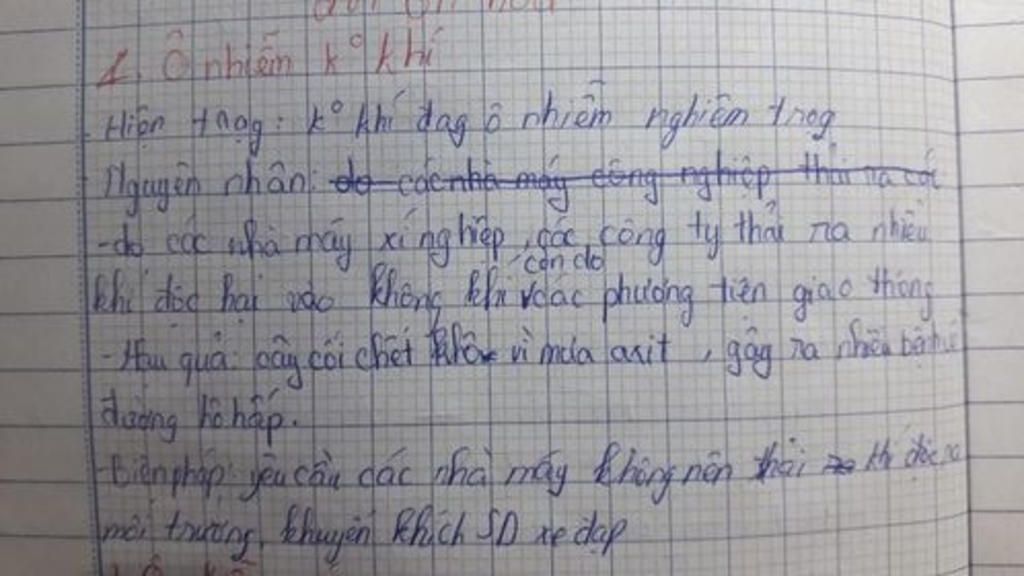 1. Ô nhiễm k° khí
- Hiện trạg: k° khí đag ô nhiễm nghiêm trọg
Nguyên nhân: do các nhà máy công nghiệp thải ra các
- do các nhà máy xí nghiệp, các công ty thải ra nhiều
còn do
khí độc hại vào không khí các phương tiện giao thông
- Hậu quả: cây cối chết khô vì mưa axit, gây ra nhiều bệnh
đường hô hấp.
- Biện pháp: yêu cầu các nhà máy không nên thải khí độc ra
môi trường, khuyến khích SD xe đạp